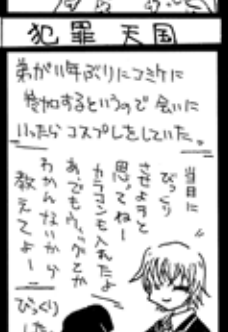 犯罪天国
弟が11年ぶりにコミケに
参加するというので 会いに
いったら コスプレをしていた。
当日に
びっくり
させよヲと
思ってねー
カラコンも入れたよ
あ、でもウィッグとか
わかんないから
教えてよー
びっくり
した。